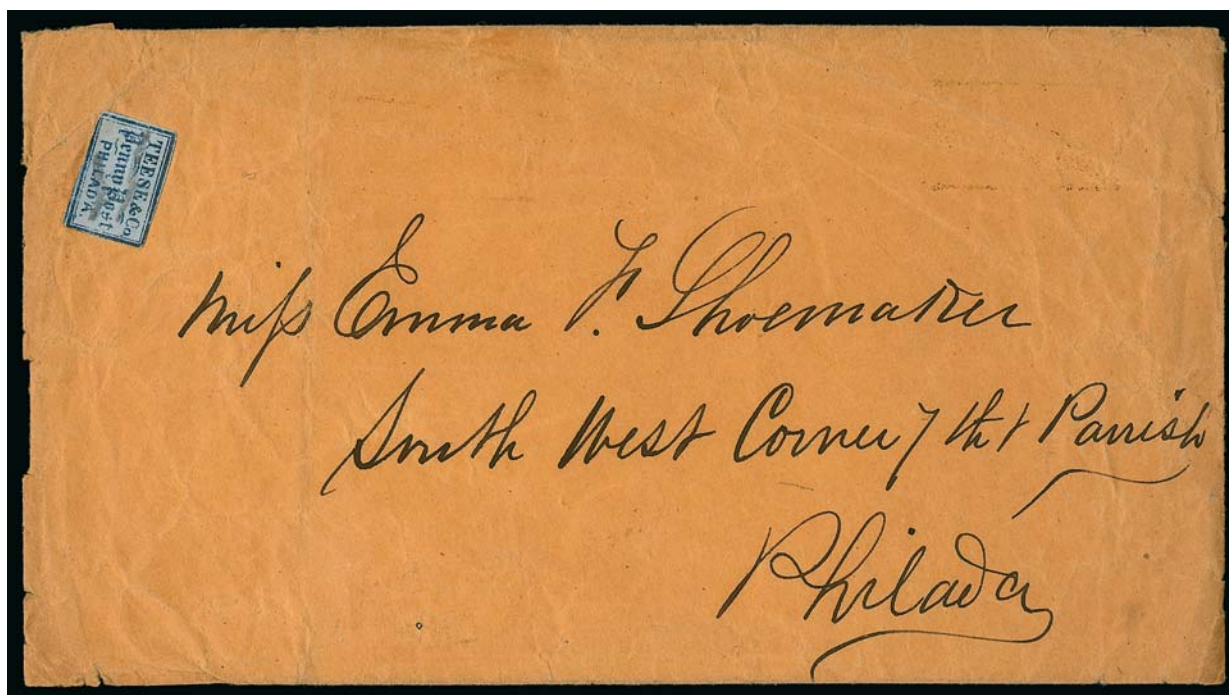 TEESE & Co.
Penny Post
PHILADA.
Miſs Emma F. Shoemaker
South West Corner 7th & Parrish
Philada